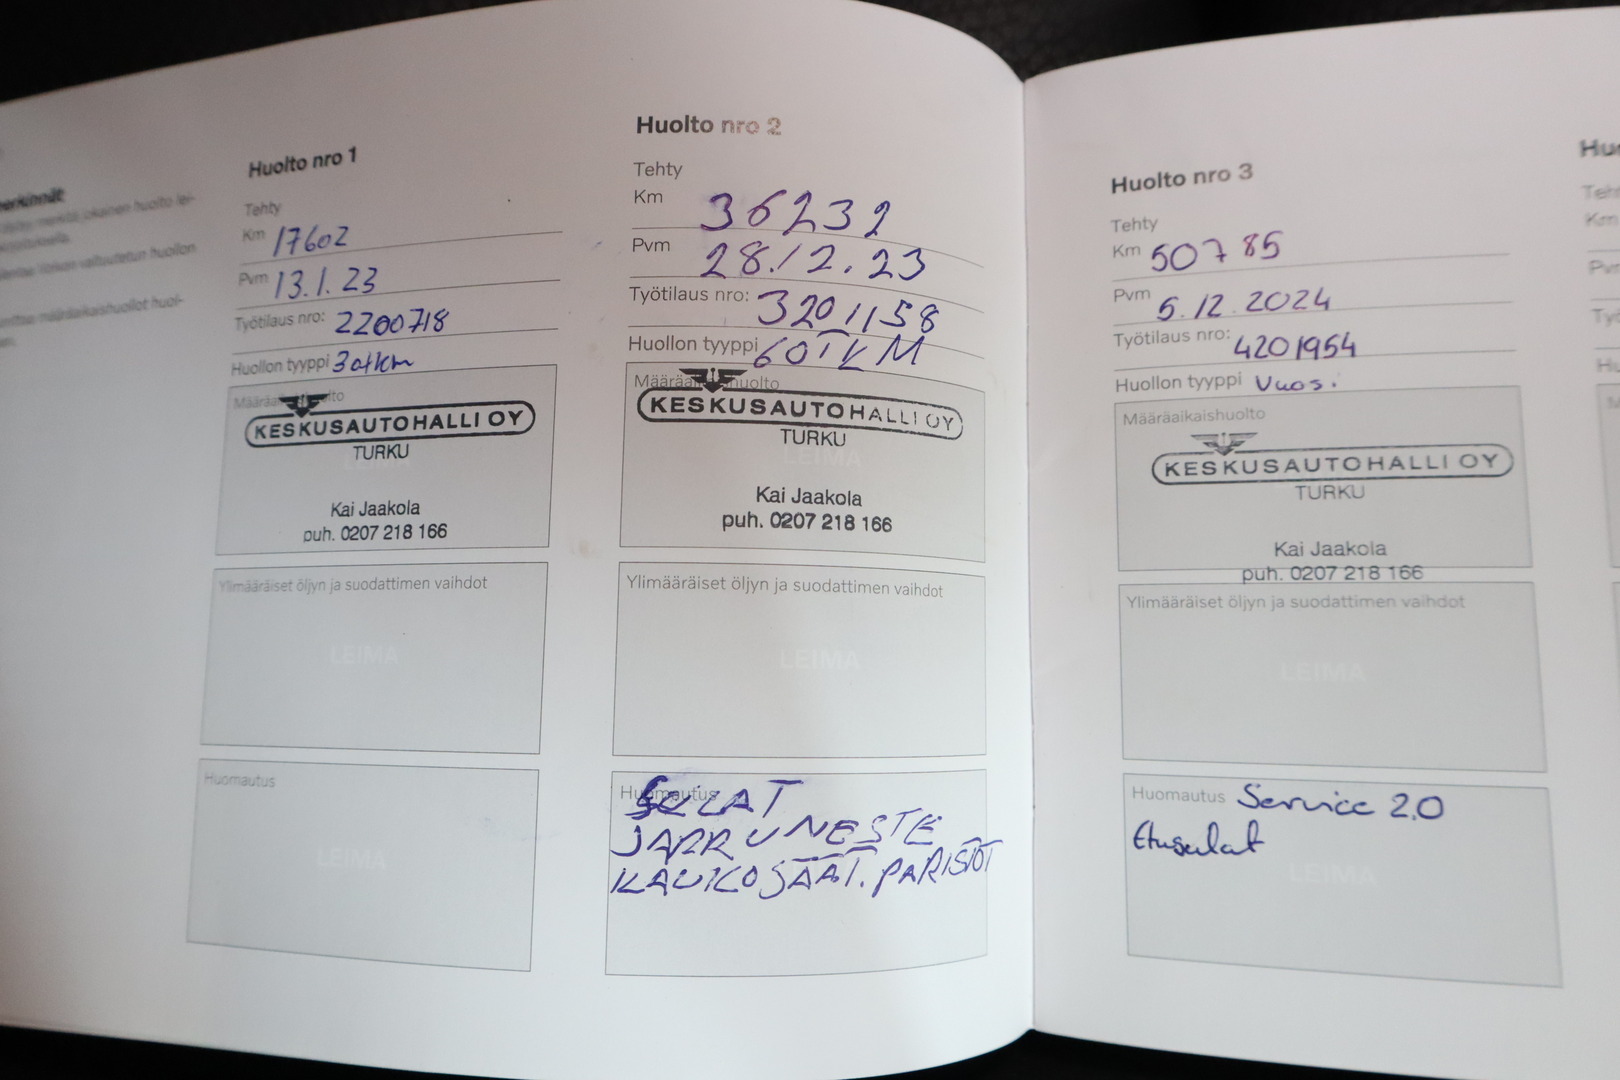 Huolto nro 1
Tehty
Km 17602
Pvm 13.1.23
Työtilaus nro: 2200718
Huollon tyyppi 30tkm
KESKUSAUTOHALLI OY
TURKU
LEIMA
Kai Jaakola
puh. 0207 218 166
Ylimääräiset öljyn ja suodattimen vaihdot
LEIMA
Huomautus
LEIMA
Huolto nro 2
Tehty
Km 36232
Pvm 28.12.23
Työtilaus nro: 3201158
Huollon tyyppi 60TKM
KESKUSAUTOHALLI OY
TURKU
LEIMA
Kai Jaakola
puh. 0207 218 166
Ylimääräiset öljyn ja suodattimen vaihdot
LEIMA
Huomautus
SULAT
JARRUNESTE
KAUKOSÄÄT. PARISTOT
Huolto nro 3
Tehty
Km 50785
Pvm 5.12.2024
Työtilaus nro: 4201954
Huollon tyyppi Vuosi
Määräaikaishuolto
KESKUSAUTOHALLI OY
TURKU
Kai Jaakola
puh. 0207 218 166
Ylimääräiset öljyn ja suodattimen vaihdot
LEIMA
Huomautus Service 2.0
Etusulat
LEIMA